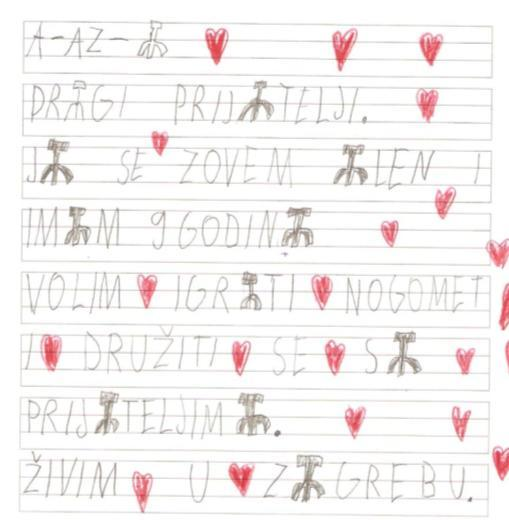 A-AZ-Ⰰ
DRⰀGI PRIJⰀTELJI.
JⰀ SE ZOVEM ⰀLEN I
IMⰀM 9 GODINⰀ
VOLIM IGRⰀTI NOGOMET
I DRUŽITI SE SⰀ
PRIJⰀTELJIMⰀ.
ŽIVIM U ZⰀGREBU.